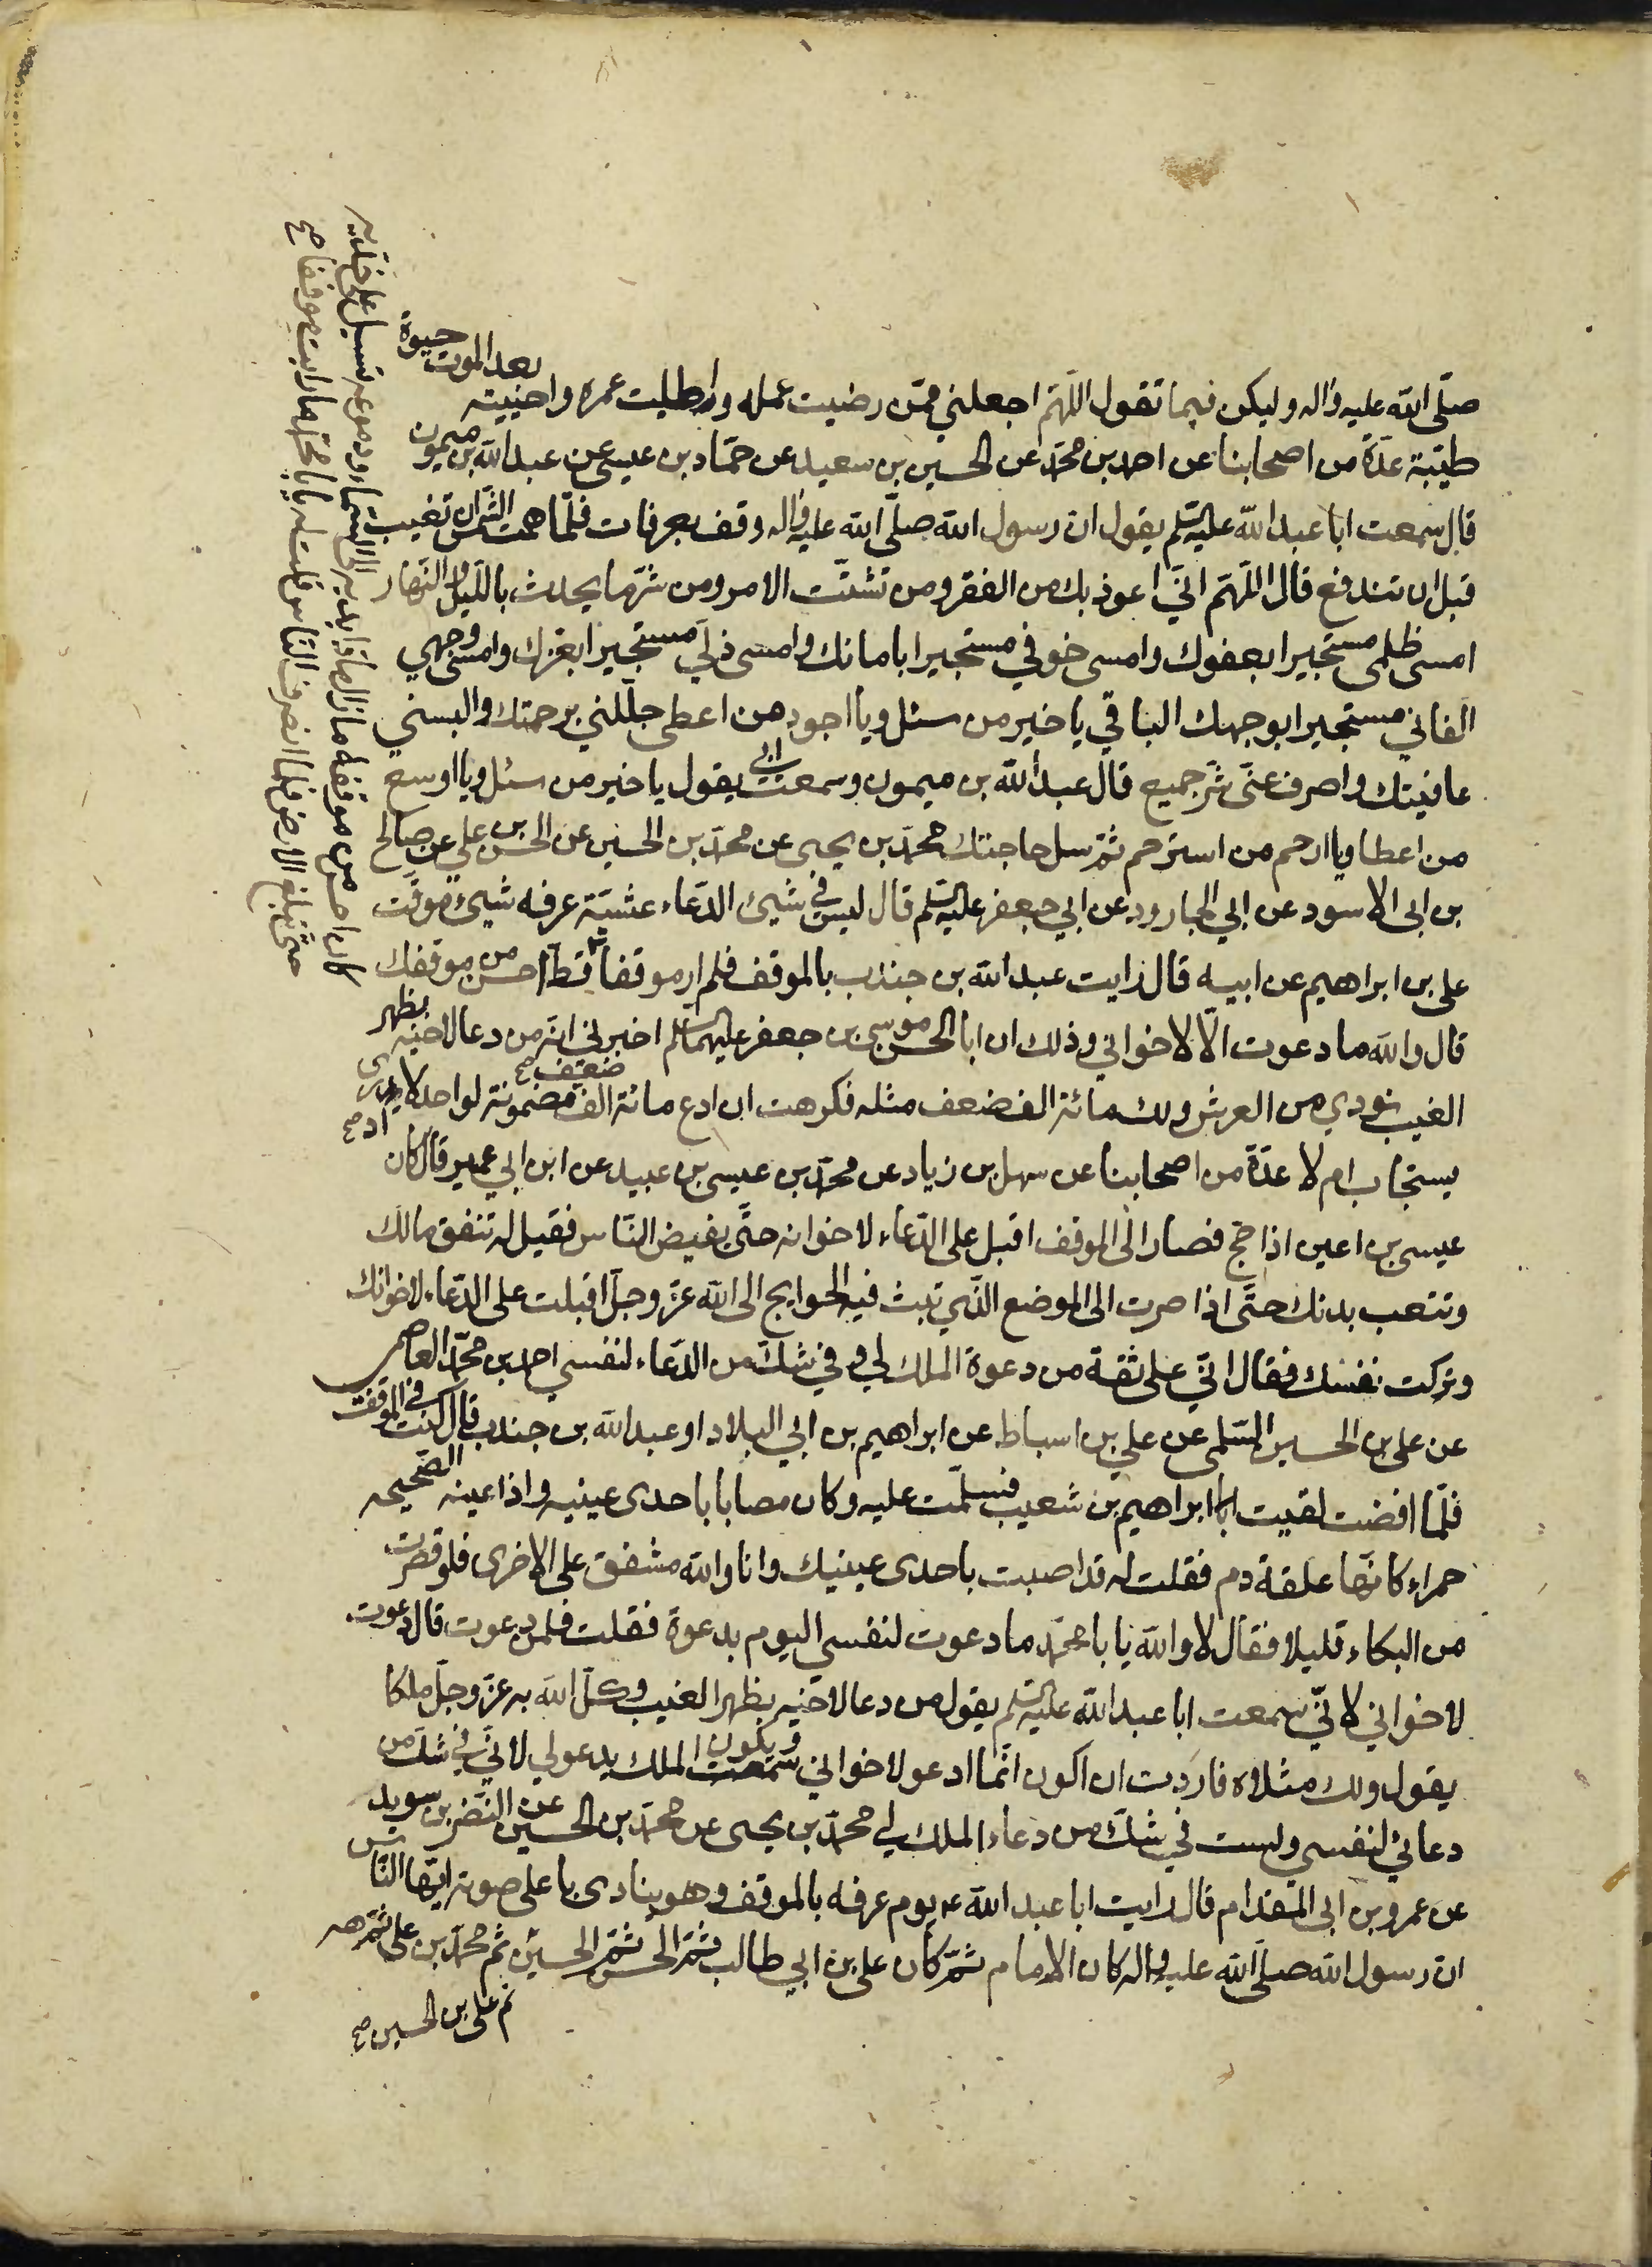 صلّى الله عليه واله وليكن فيما تقول اللّهمّ اجعلني ممّن رضيت عمله واطلت عمره واحييته بعد الموت حيوة
طيّبة عدّة من اصحابنا عن احمد بن محمّد عن الحسين بن سعيد عن حمّاد بن عيسى عن عبد الله بن ميمون
قال سمعت ابا عبد الله عليه السّلم يقول ان رسول الله صلّى الله عليه واله وقف بعرفات فلمّا همت الشّمس ان تغيب
قبل ان تندفع قال اللّهمّ انّي اعوذ بك من الفقر ومن تشتّت الامر ومن شرّ ما يحدث باللّيل والنّهار
امسى ظلمى مستجيرا بعفوك وامسى خوفي مستجيرا بامانك وامسى ذلّي مستجيرا بعزك وامسى وجهي
الفاني مستجيرا بوجهك الباقي يا خير من سئل ويا اجود من اعطى جلّلني برحمتك والبسني
عافيتك واصرف عنّى شرّ جميع قال عبد الله بن ميمون وسمعت ابي يقول يا خير من سئل ويا اوسع
من اعطا ويا ارحم من استرحم ثمّ سل حاجتك محمّد بن يحيى عن محمّد بن الحسين عن الحسن بن علي عن صالح
بن ابى الاسود عن ابي الجارود عن ابي جعفر عليه السّلم قال ليس في شيئ الدّعاء عشيّة عرفه شيئ موقّت
على بن ابراهيم عن ابيه قال رايت عبد الله بن جندب بالموقف فلم ار موقفا قطّ احسن من موقفك
قال والله ما دعوت الّا لاخواني وذلك ان ابا الحسن موسى بن جعفر عليهما السّلم اخبرني انّه من دعا لاخيه بظهر
الغيب نودي من العرش ولك مائة الف ضعف مثله فكرهت ان ادع مائة الف ضعف صح مضمونة لواحد لا ادرى صح
يستجاب ام لا عدّة من اصحابنا عن سهل بن زياد عن محمّد بن عيسى بن عبيد عن ابن ابي عمير قال كان
عيسى بن اعين اذا حج فصار الى الموقف اقبل على الدّعاء لاخوانه حتّى يفيض النّاس فقيل له تنفق مالك
وتتعب بدنك حتّى اذا صرت الى الموضع الّذي تبث فيه الحوايج الى الله عزّ وجلّ اقبلت على الدّعاء لاخوانك
وتركت نفسك فقال انّي على ثقة من دعوة الملك لي وفي شكّ من الدّعاء لنفسي احمد بن محمّد العاصمى
عن على بن الحسين السّلمى عن علي بن اسباط عن ابراهيم بن ابي البلاد او عبد الله بن جندب قال كنت في الموقف
فلمّا افضت لقيت ابراهيم بن شعيب فسلّمت عليه وكان مصابا باحدى عينيه واذا عينه الصّحيحه
حمراء كانّها علقة دم فقلت له قد اصبت باحدى عينيك وانا والله مشفق على الاخرى فلو قصرت
من البكاء قليلا فقال لا والله يا با محمّد ما دعوت لنفسى اليوم بدعوة فقلت فلمن دعوت قال دعوت
لاخواني لانّي سمعت ابا عبد الله عليه السّلم يقول من دعا لاخيه بظهر الغيب وكّل الله به عزّ وجلّ ملكا
يقول ولك مثلاه فاردت ان اكون انّما ادعو لاخواني ويكون الملك يدعو لي لانّي في شكّ من
دعائي لنفسي ولست في شكّ من دعاء الملك لي محمّد بن يحيى عن محمّد بن الحسين عن النّضر بن سويد
عن عمرو بن ابى المقدام قال رايت ابا عبد الله ع يوم عرفه بالموقف وهو ينادى باعلى صوته ايّها النّاس
ان رسول الله صلّى الله عليه واله كان الامام ثمّ كان على بن ابي طالب ثمّ الحسن ثمّ الحسين ثم محمّد بن على ثمّ هه
ثم على بن الحسين صح
كان احسن من موقفه ما زال مادّا يديه الى السّماء ودموعه تسيل على خدّيه
حتّى تبلغ الارض فلمّا انصرف النّاس قلت له يا با محمّد ما رايت موقفا صح